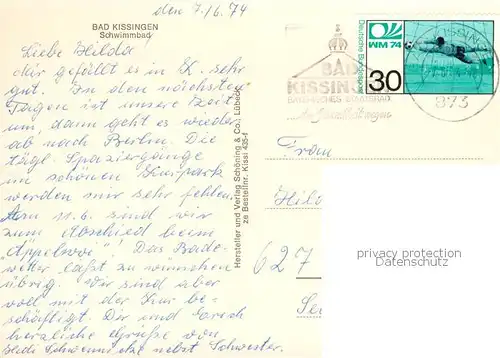 BAD KISSINGEN
Schwimmbad
den 7./6. 74
Liebe Hilda!
Mir gefällt es in K. sehr
gut. In den nächsten
Tagen ist unsere Zeit
um, dann geht es wieder
ab nach Berlin. Die
tägl. Spaziergänge
im schönen Kurpark
werden mir sehr fehlen.
Am 11.6. sind wir
zum Abschied beim
"Äppelwoi"! Das Bade-
wetter läßt zu wünschen
übrig. Wir sind aber
voll mit der Kur be-
schäftigt. Dir und Erich
herzliche Grüße von
nebst Schwester.
Hersteller und Verlag Schöning & Co., Lübeck
ze Bestellnr. Kissi 435-f
BAD
KISSING
Deutsche Bundespost
WM 74
30
873
Frau
Hild
627
privacy protection
Datenschutz